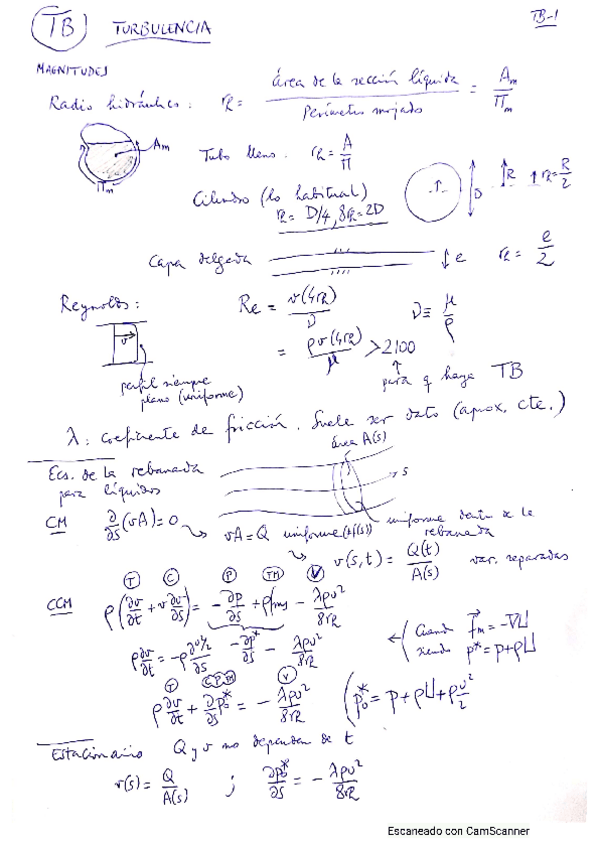 TB TURBULENCIA TB-1
MAGNITUDES
Radio hidráulico: r_R = área de la sección líquida / Perímetro mojado = A_m / Π_m
A_m
Π_m
Tubo lleno: r_R = A / Π
Cilindro (lo habitual)
r_R = D/4, 8r_R = 2D
D R r_R = R/2
Capa delgada e r_R = e/2
Reynolds: Re = v(4r_R) / ν ν ≡ μ/ρ
v
= ρv(4r_R) / μ > 2100
para q haya TB
perfil siempre
plano (uniforme)
λ: coeficiente de fricción. Suele ser dato (aprox. cte.)
área A(s)
Ecs. de la rebanada
para líquidos
s
CM ∂/∂s (vA) = 0 → vA = Q uniforme (≠f(s)) uniforme dentro de la
rebanada
→ v(s,t) = Q(t) / A(s) var. separadas
T C P TM V
CCM ρ(∂v/∂t + v ∂v/∂s) = -∂p/∂s + ρf_ms - λρv²/8r_R
ρ ∂v/∂t = -ρ ∂v²/2/∂s - ∂p*/∂s - λρv²/8r_R ← (Cuando f_m = -∇U
siendo p* = p + ρU
T C P M V
ρ ∂v/∂t + ∂/∂s p₀* = - λρv²/8r_R (p₀* = p + ρU + ρ v²/2
Estacionario Q y v no dependen de t
v(s) = Q / A(s) ; ∂p₀*/∂s = - λρv²/8r_R
Escaneado con CamScanner